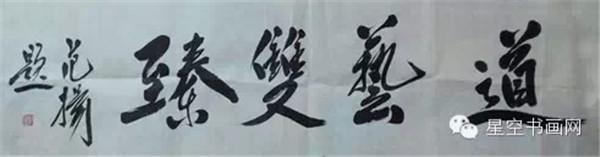 道藝雙臻
范揚
題
星空书画网